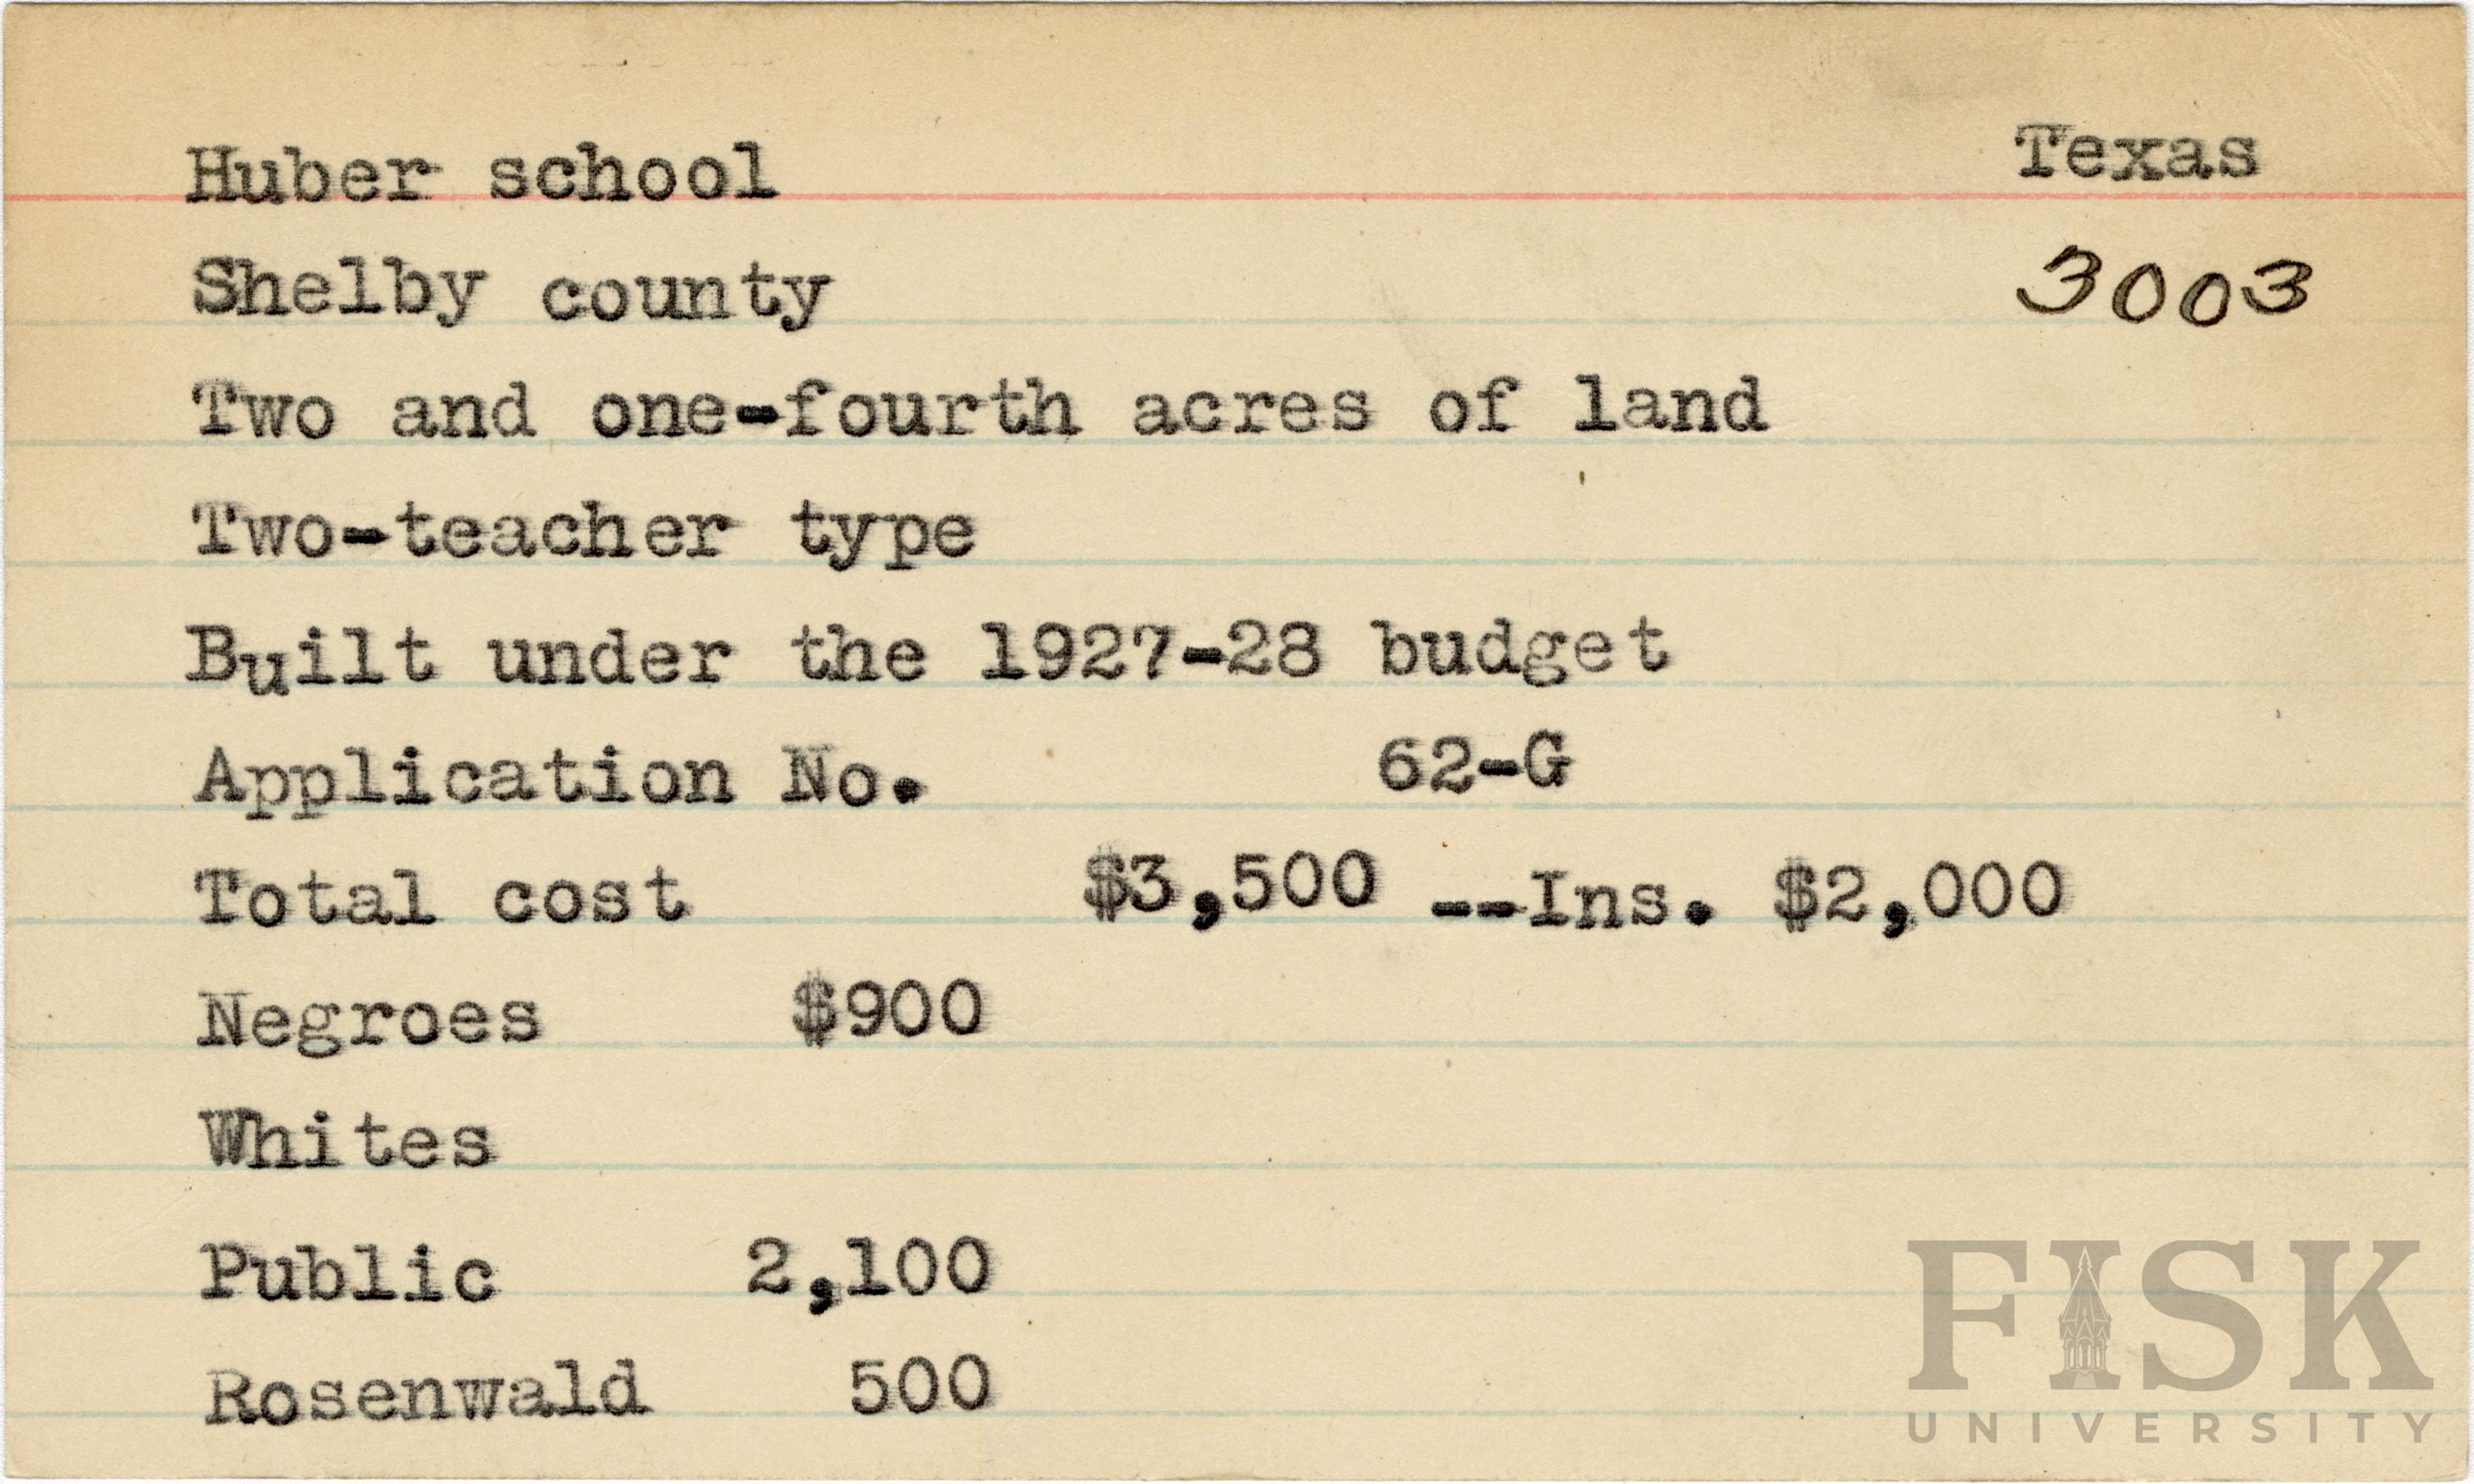 Huber school Texas
Shelby county 3003
Two and one-fourth acres of land
Two-teacher type
Built under the 1927-28 budget
Application No. 62-G
Total cost $3,500 --Ins. $2,000
Negroes $900
Whites
Public 2,100
Rosenwald 500
FISK
UNIVERSITY